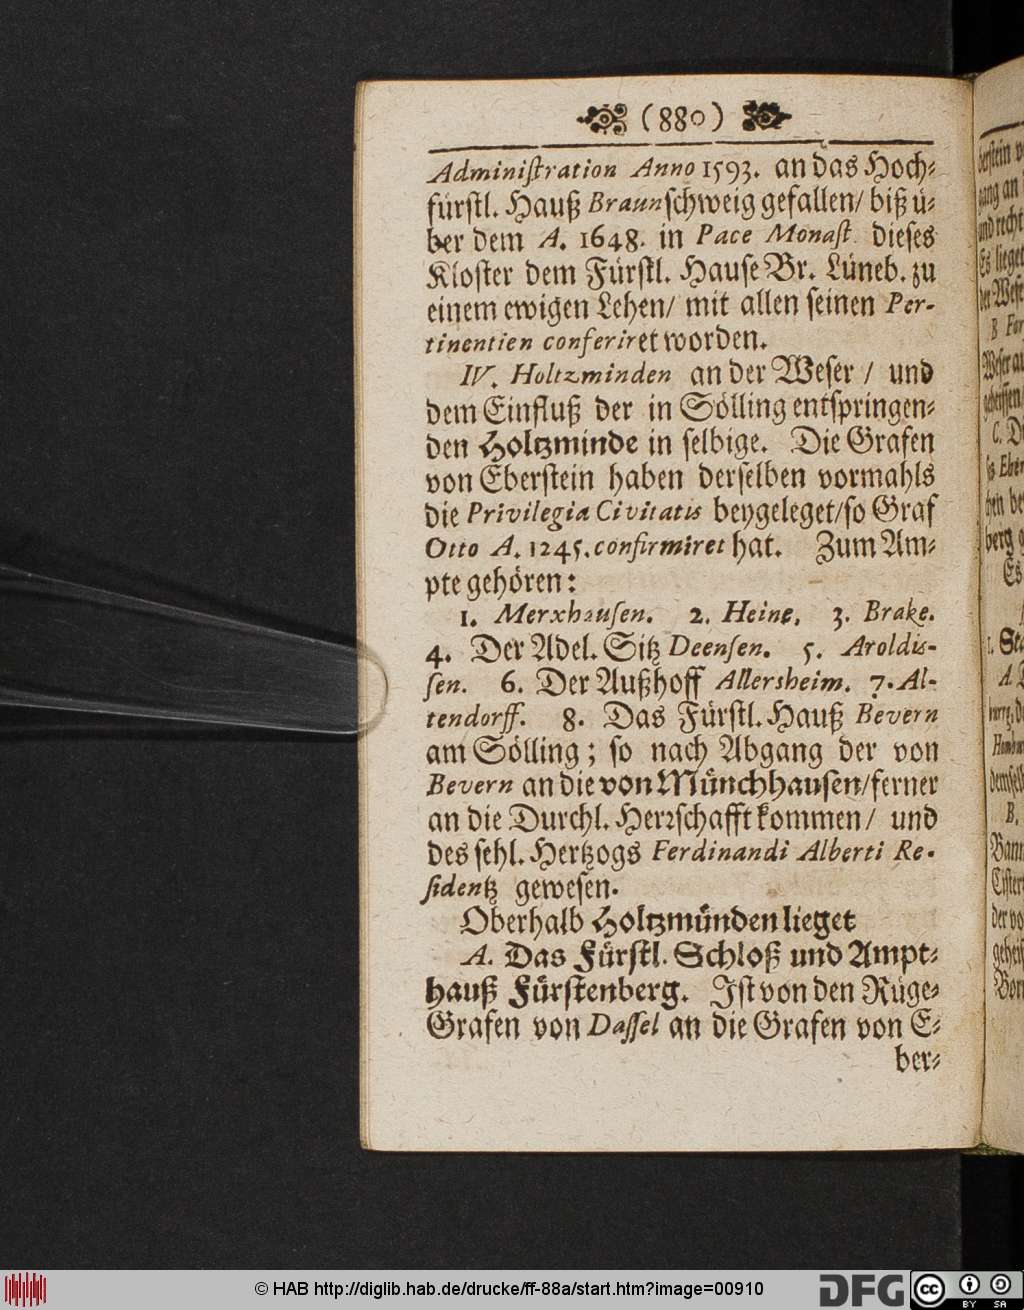 (880)
Administration Anno 1593. an das Hoch-
fürstl. Hauß Braunschweig gefallen/ biß ü-
ber dem A. 1648. in Pace Monast. dieses
Kloster dem Fürstl. Hause Br. Lüneb. zu
einem ewigen Lehen/ mit allen seinen Per-
tinentien conferiret worden.
IV. Holtzminden an der Weser / und
dem Einfluß der in Sölling entspringen-
den Holtzminde in selbige. Die Grafen
von Eberstein haben derselben vormahls
die Privilegia Civitatis beygeleget/so Graf
Otto A. 1245. confirmiret hat. Zum Am-
pte gehören:
1. Merxhausen. 2. Heine. 3. Brake.
4. Der Adel. Sitz Deensen. 5. Aroldis-
sen. 6. Der Außhoff Allersheim. 7. Al-
tendorff. 8. Das Fürstl. Hauß Bevern
am Sölling; so nach Abgang der von
Bevern an die von Münchhausen/ferner
an die Durchl. Herrschafft kommen/ und
des sehl. Hertzogs Ferdinandi Alberti Re-
sidentz gewesen.
Oberhalb Holtzmünden lieget
A. Das Fürstl. Schloß und Ampt-
hauß Fürstenberg. Ist von den Rüge-
Grafen von Dassel an die Grafen von E-
ber-
© HAB http://diglib.hab.de/drucke/ff-88a/start.htm?image=00910
DFG
cc BY SA